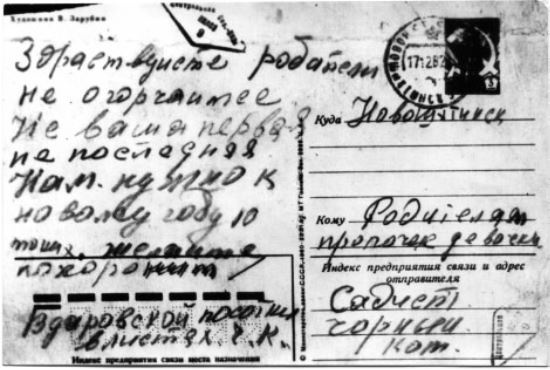 Художник В. Зарубин
Здраствуйсте родатели
не огорчайтесе
Не ваша первая
не последняя
Нам. нужно к
новому году 10
желаите
похоронит
в листах. Ч.К.
Индекс предприятия связи места назначения
17 12 82
Куда Новошахтинск
Кому Родителям
пропочек девочки
Индекс предприятия связи и адрес
отправителя
Садист
чорный
кот.